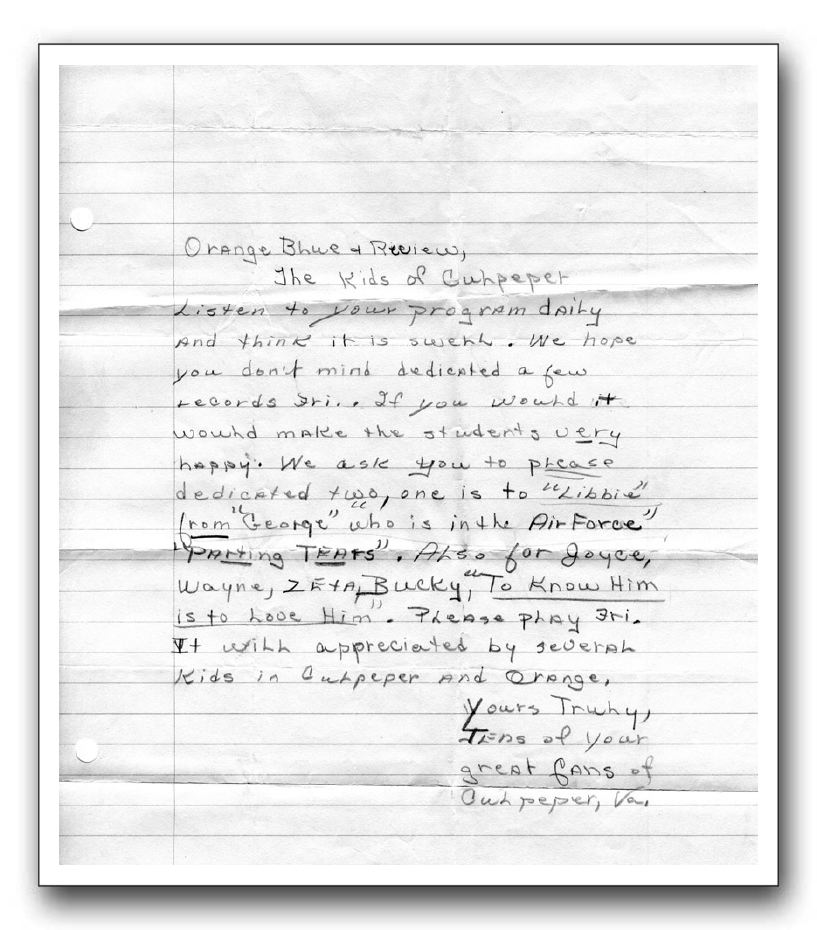 Orange Blue + Review,
The Kids of Culpeper
Listen to your program daily
and think it is swell. We hope
you don't mind dedicated a few
records Fri.. If you would it
would make the students very
happy. We ask you to please
dedicated two, one is to "Libbie"
from "George" "who is in the Air Force"
"Parting Tears". Also for Joyce,
Wayne, Zeta, Bucky, "To Know Him
is to Love Him". Please play Fri.
It will appreciated by several
Kids in Culpeper and Orange.
Yours Truly,
Tens of your
great fans of
Culpeper, Va.